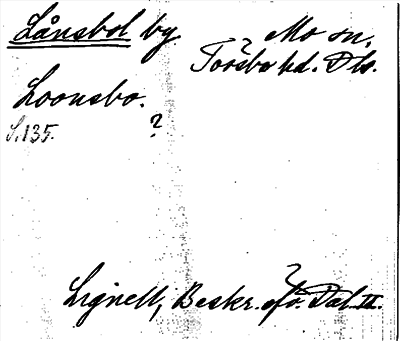 Långbol by Mo sn,
Torsbo hd. Dls.
Loonsbo.
S. 135. ?
Lignell, Beskr. öfv. Dal. III.